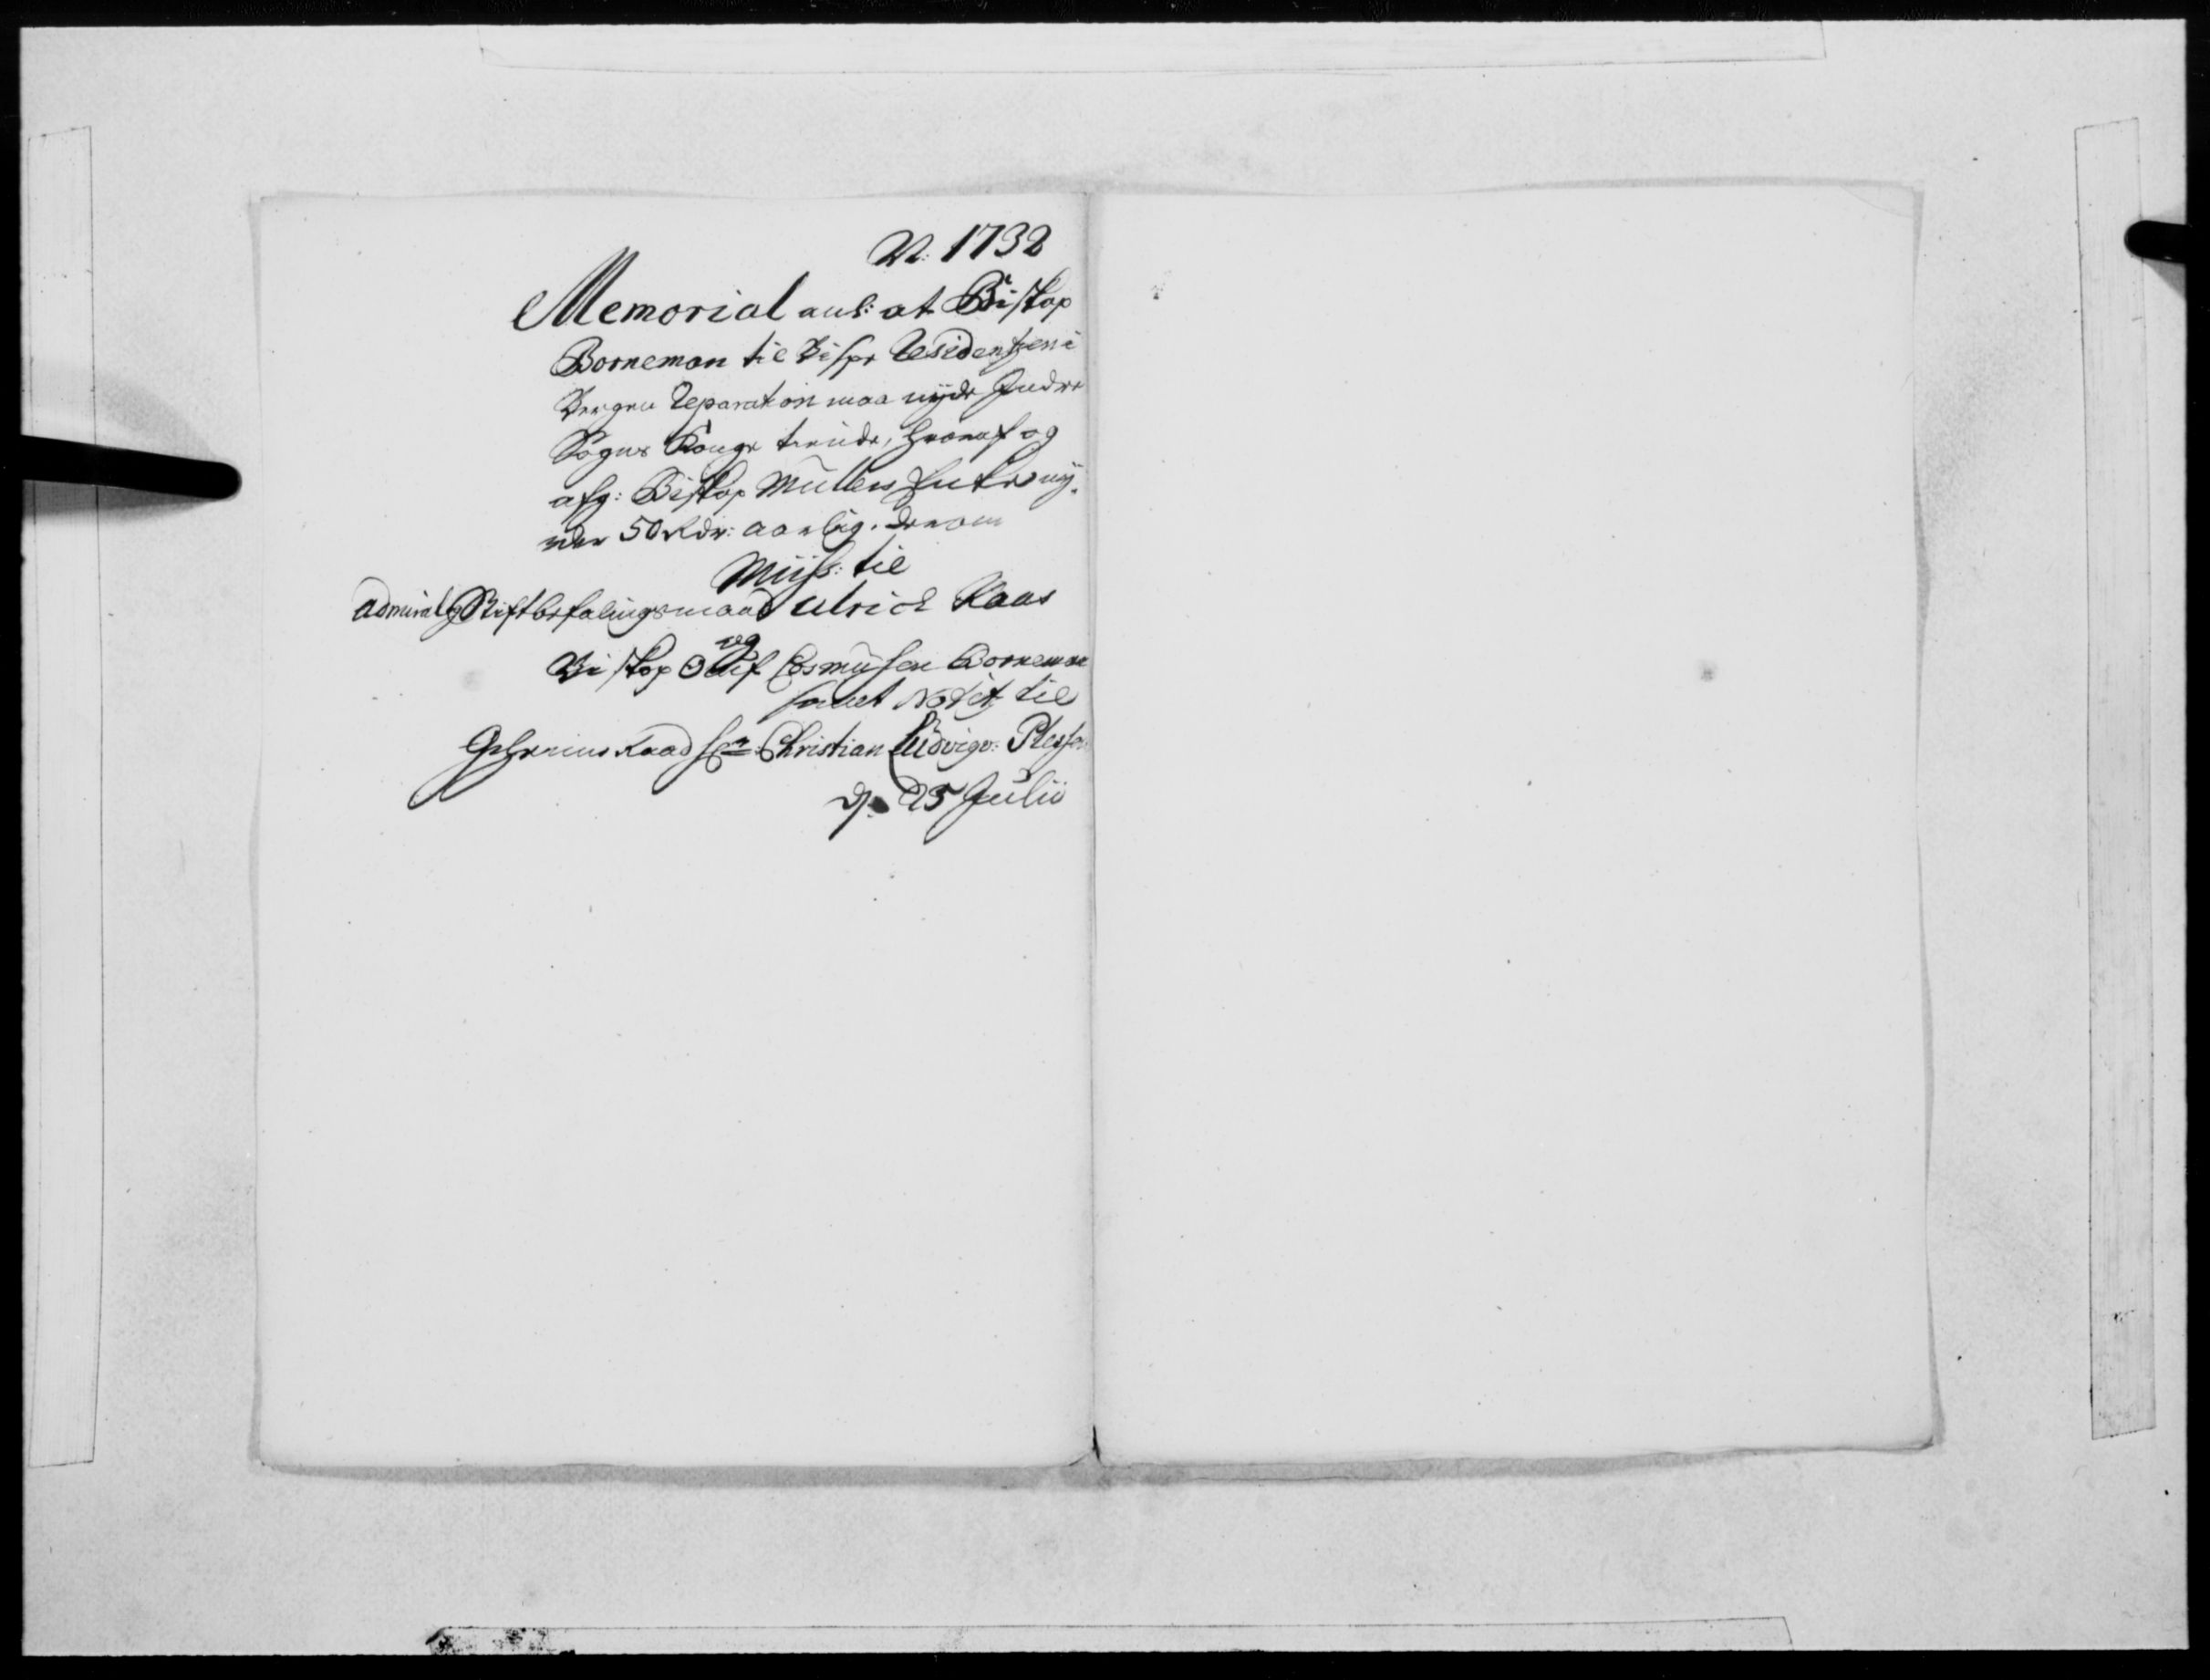 A: 1732
Memorial anl: at Biskop
Borneman til Bispe Residentzen i
Bergen Reparation maa nyde Indre
Sogns Konge tiende, hvoraf og
afg: Biskop Mullers Enke ny,
der 50 Rdr: aarlig. derom
Miss: til
Admiral og Stiftbefalingsmand Ulrich Kaas
og
Biskop Oluf Cosmusen Borneman
samt Notitz til
Geheime Raad Hr: Christian Ludvig v: Plessen
d. 25 Julii